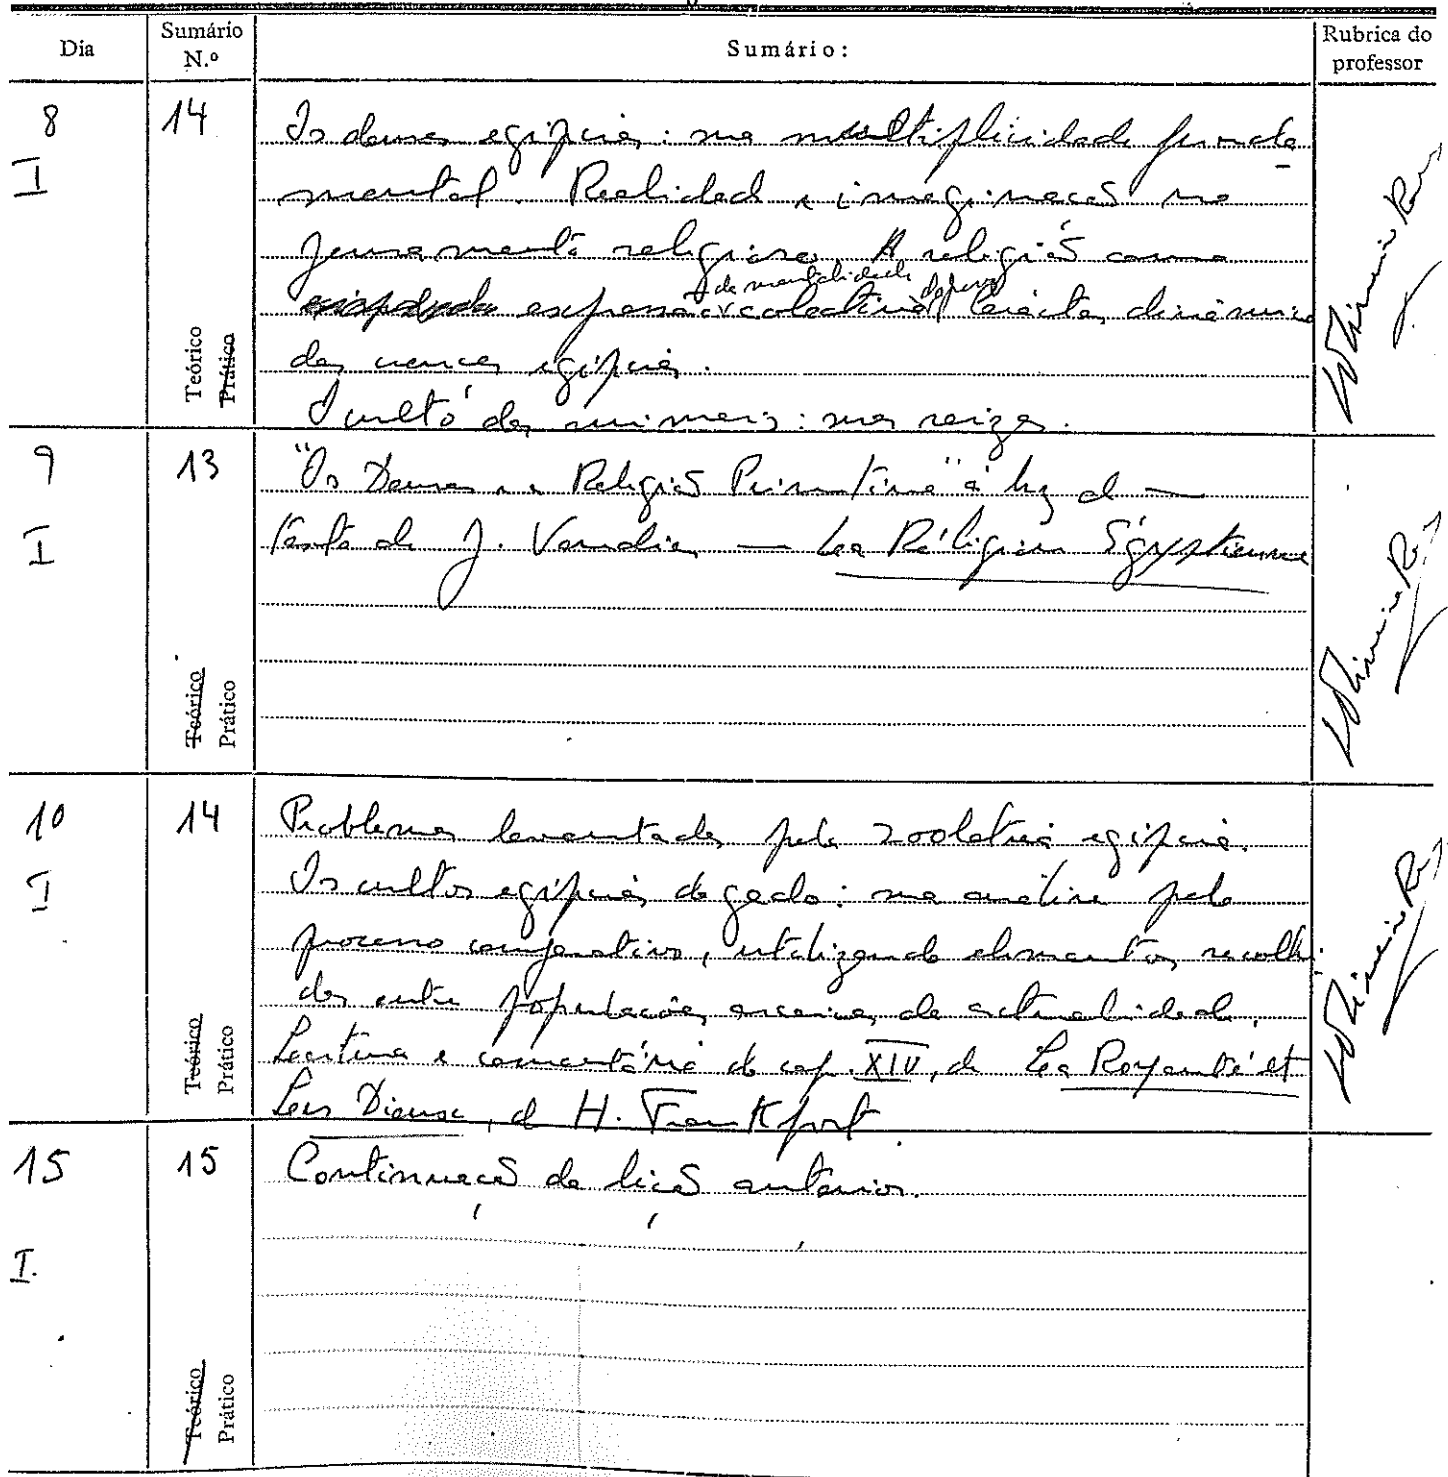 Dia
Sumário N.º
Sumário:
Rubrica do professor
8
I
14
Teórico
Prático
Os deuses egípcios: sua multiplicidade funda
mental. Realidade e imaginação no
pensamento religioso. A religião como
expressão da mentalidade colectiva do povo. Carácter dinâmico
das crenças egípcias.
O culto dos animais: suas raízes.
9
I
13
Teórico
Prático
"Os Deuses e a Religião Primitiva" à luz do
texto de J. Vandier — La Réligion Égyptienne
10
I
14
Teórico
Prático
Problemas levantados pela zoolatria egípcia.
Os cultos egípcios do gado: sua análise pelo
processo comparativo, utilizando elementos recolhi
dos entre populações da actualidade.
Leitura e comentário do cap. XIV, de La Royauté et
Les Dieux, de H. Frankfort
15
I.
15
Teórico
Prático
Continuação da lição anterior.